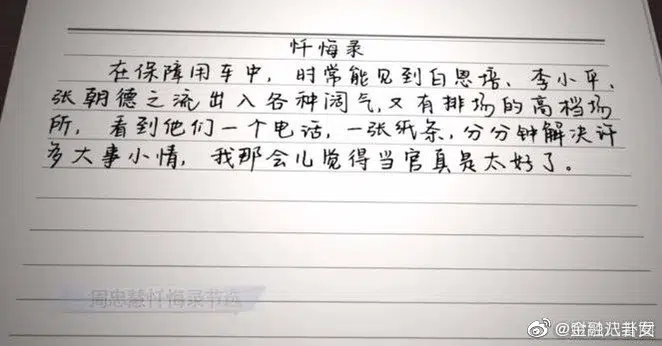 忏悔录
在保障用车中，时常能见到白恩培、李小平、
张朝德之流出入各种阔气，又有排场的高档场
所，看到他们一个电话，一张纸条，分分钟解决许
多大事小情，我那会儿觉得当官真是太好了。
周忠慧忏悔录节选
@金融八卦女